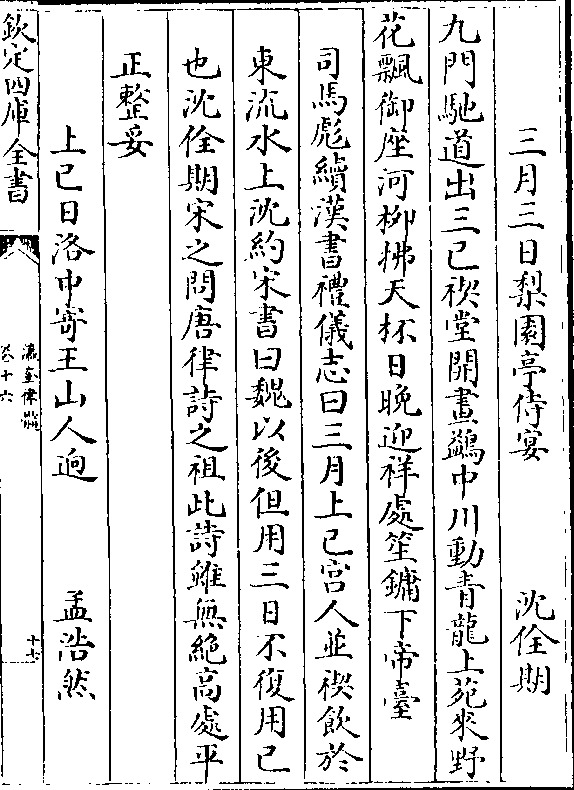 三月三日梨園亭侍宴　沈佺期
九門馳道出三巳禊堂開畫鷁中川動青龍上苑來野
花飄御座河柳拂天杯日晚迎祥處笙鏞下帝臺
司馬彪續漢書禮儀志曰三月上巳宫人並禊飲於
東流水上沈約宋書曰魏以後但用三日不復用巳
也沈佺期宋之問唐律詩之祖此詩雖無絶高處平
正整妥
上巳日洛中寄王山人逈　孟浩然
欽定四庫全書
瀛奎律髓
卷十六
十七